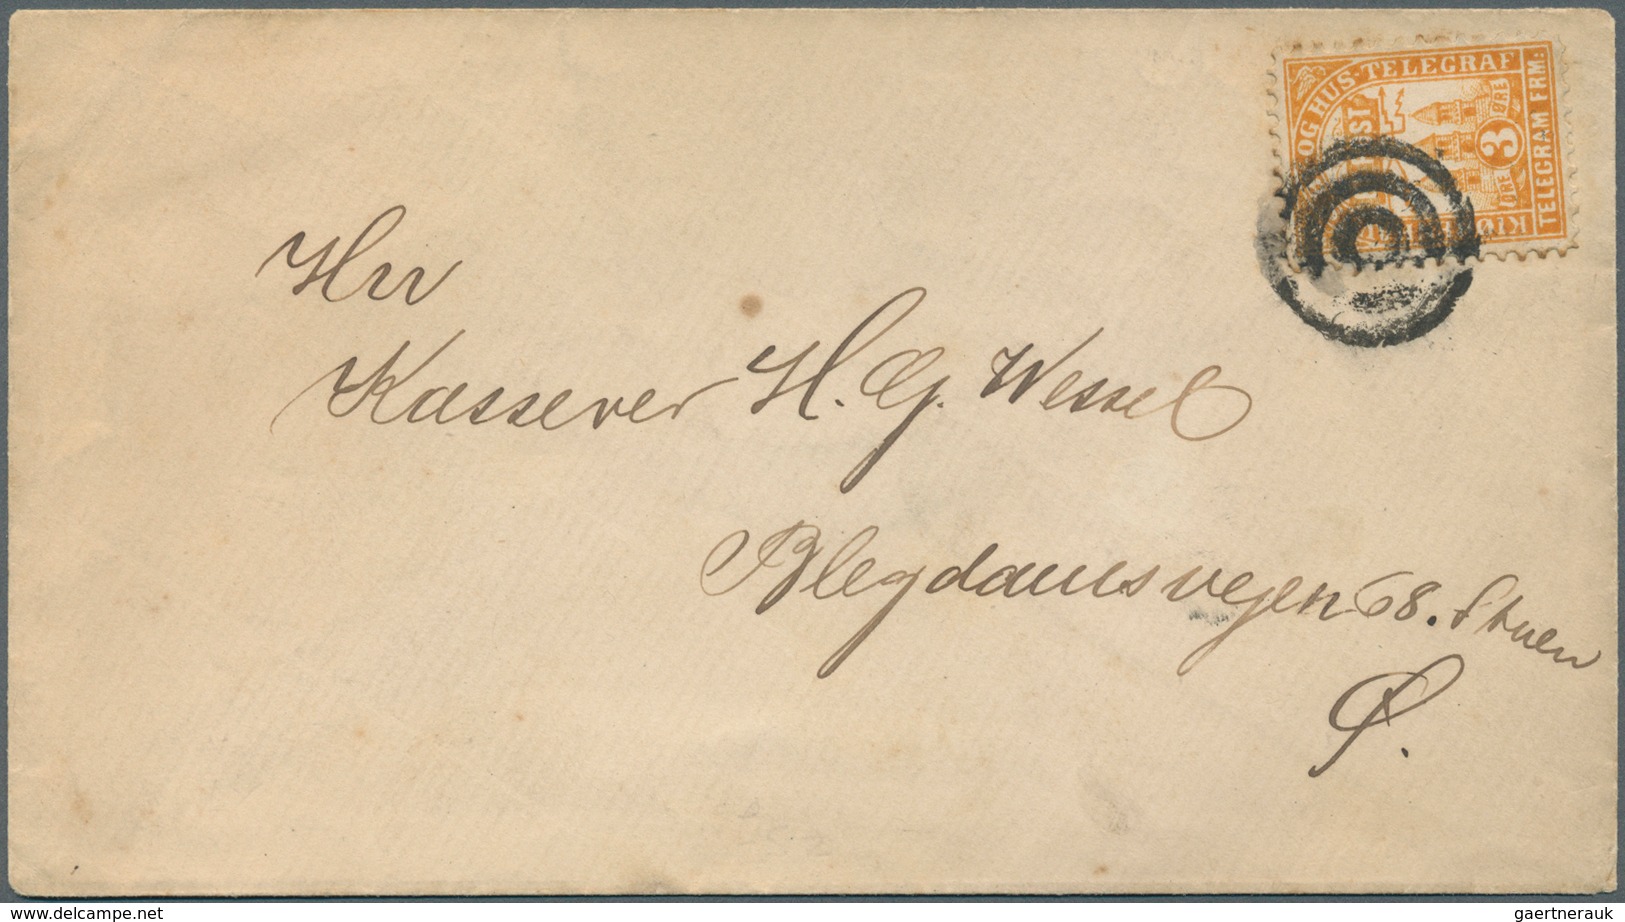 OG HUS·TELEGRAF
3 ØRE
ØRE
TELEGRAM FRM:
Hrr
Kasserer H. G. Wessel
Blegdamsvejen 68. Stuen
Ø.
www.delcampe.net
gaertnerauk